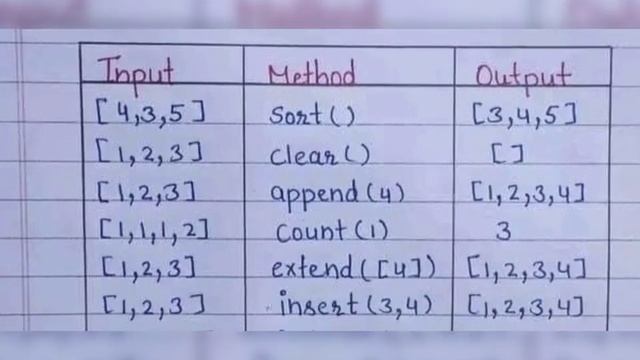 Input Method Output
[4,3,5] sort() [3,4,5]
[1,2,3] clear() []
[1,2,3] append(4) [1,2,3,4]
[1,1,1,2] count(1) 3
[1,2,3] extend([4]) [1,2,3,4]
[1,2,3] insert(3,4) [1,2,3,4]